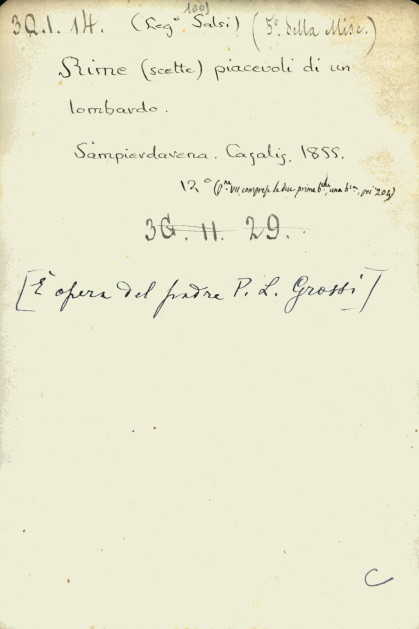 1001
3Q.1.14. (Leg° Salsi) (5°. della Misc.)
Rime (scelte) piacevoli di un
lombardo.
Sampierdarena. Casalis, 1855.
12° (pne VII comprese le due prime bche, una bca, poi 204)
3G. 11. 29.
[È opera del padre P. L. Grossi]
C